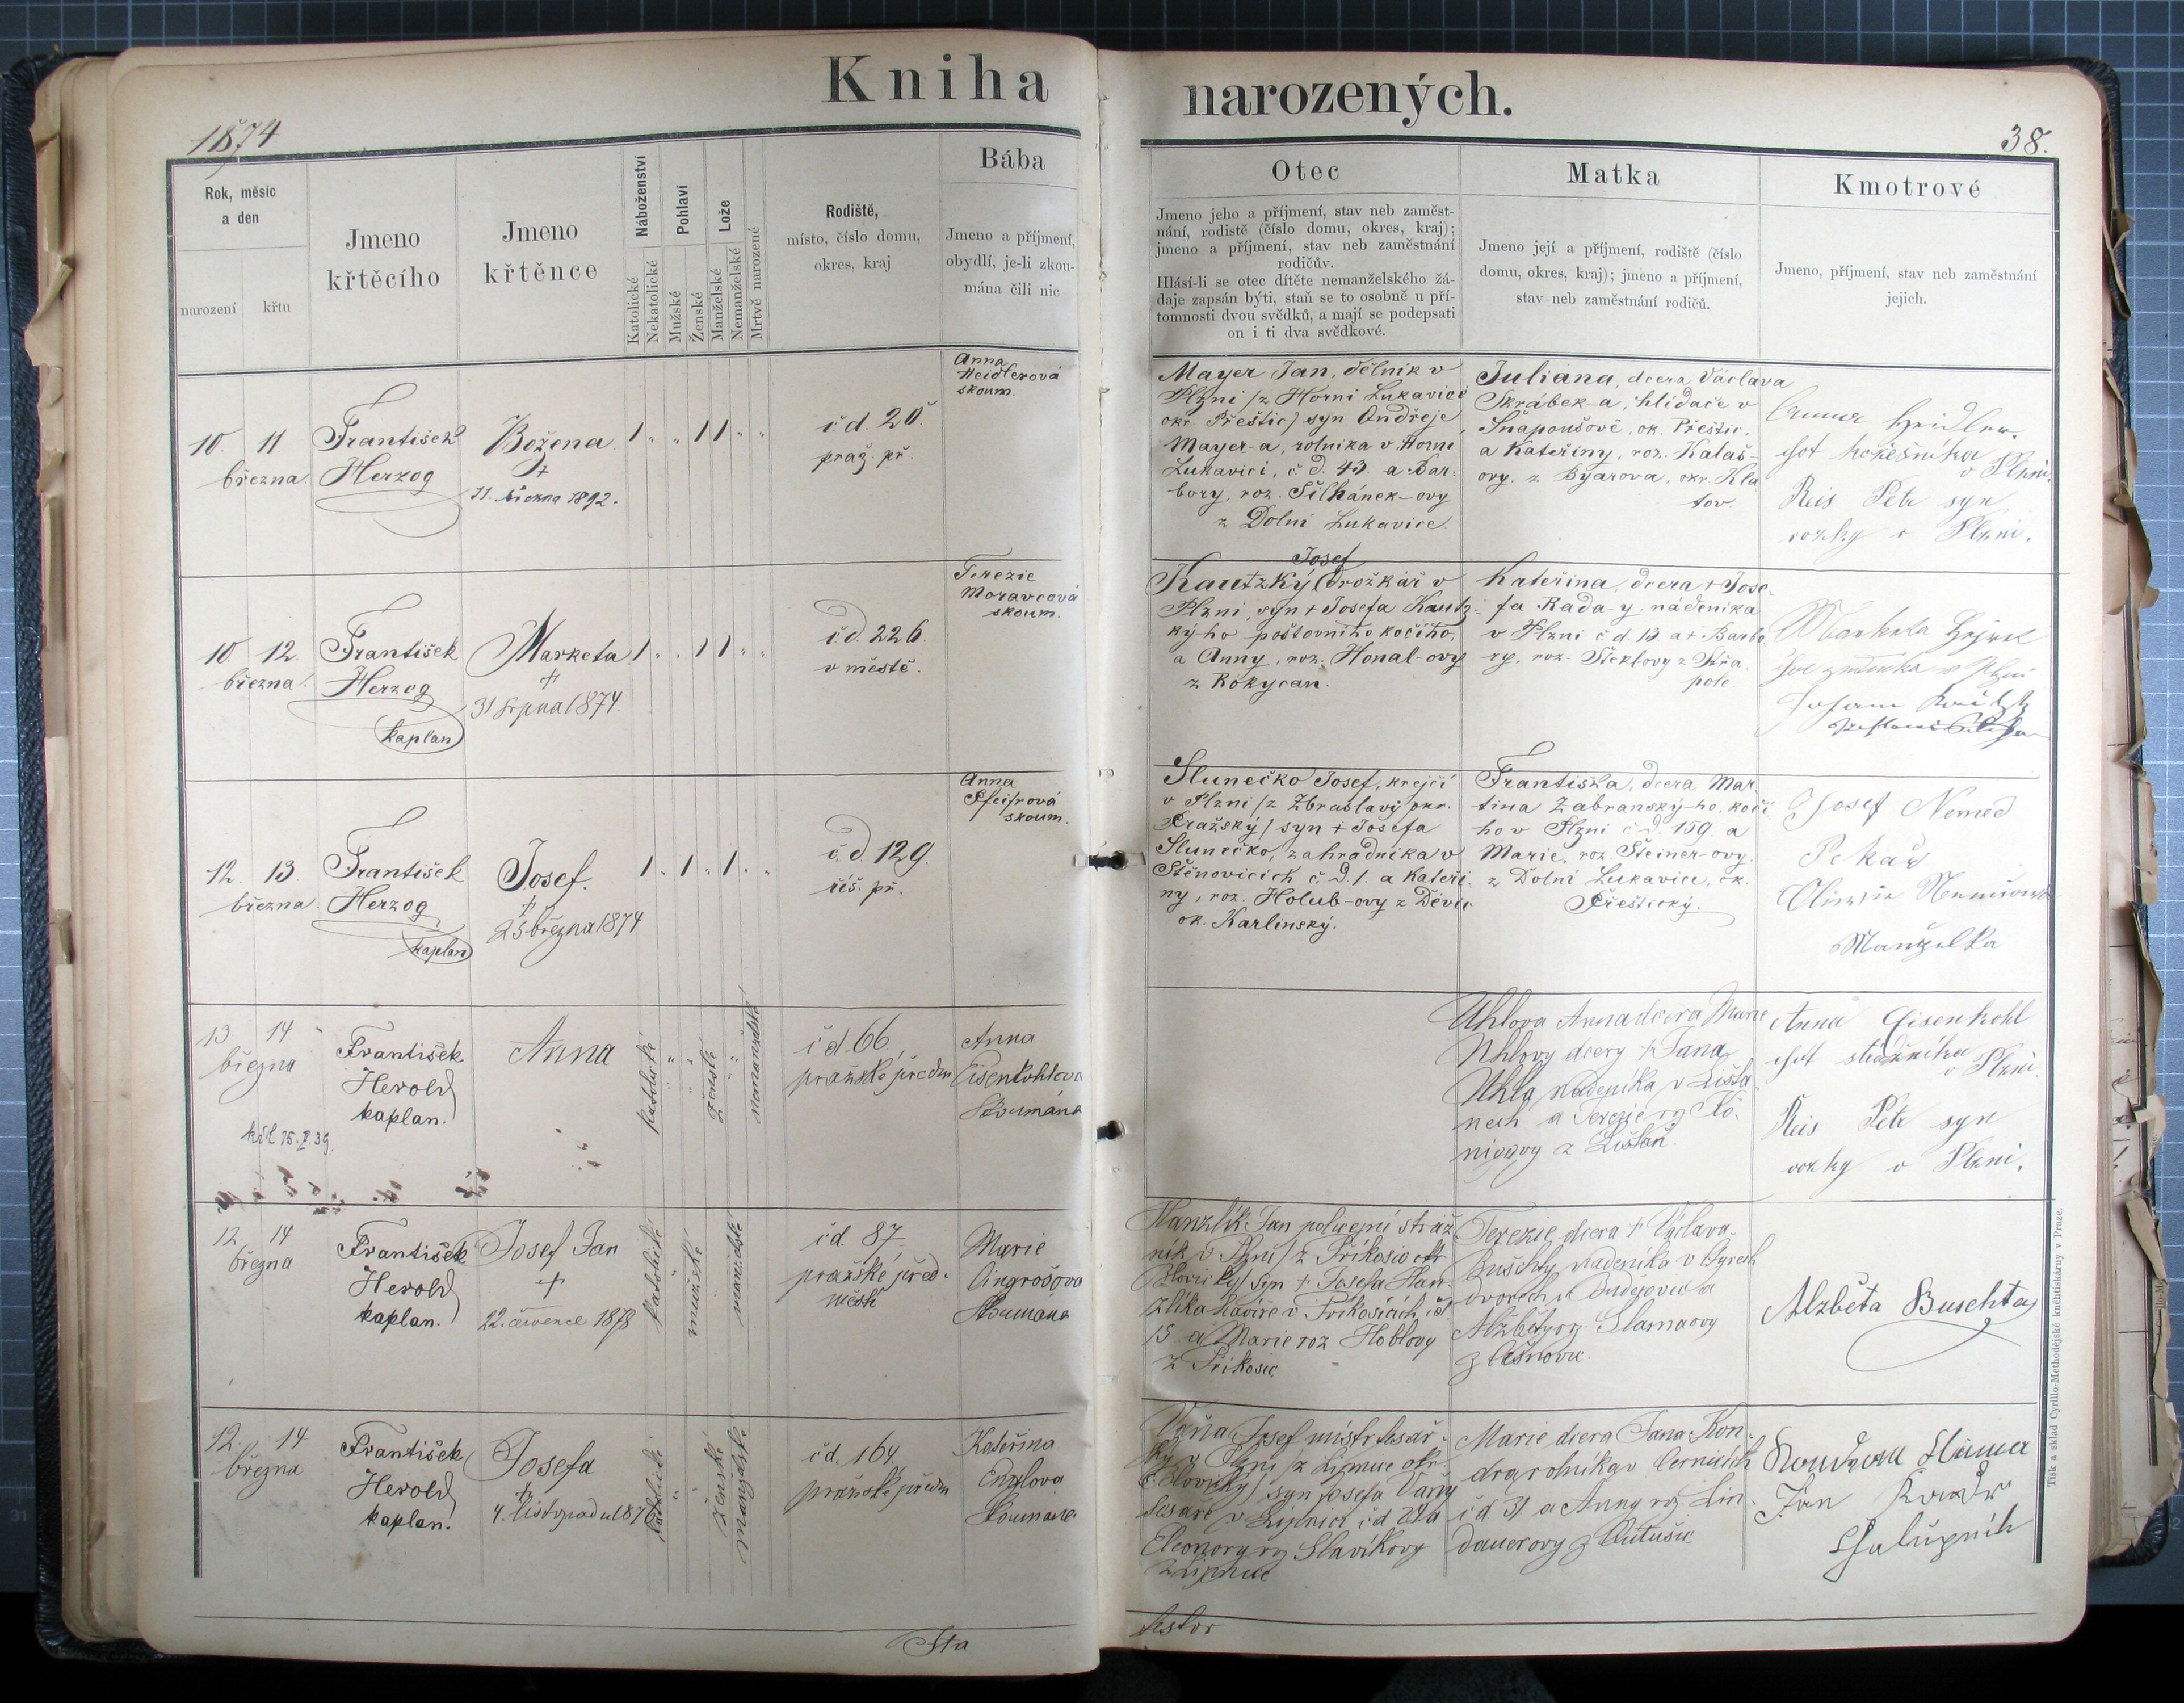 Kniha narozených.
1874
38.
Rok, měsíc a den
narození
křtu
Jmeno křtěcího
Jmeno křtěnce
Náboženství
Katolické
Nekatolické
Pohlaví
Mužské
Ženské
Lože
Manželské
Nemanželské
Mrtvě narozené
Rodiště,
místo, číslo domu,
okres, kraj
Bába
Jmeno a příjmení,
obydlí, je-li zkou-
mána čili nic
Otec
Jmeno jeho a příjmení, stav neb zaměst-
nání, rodistě (číslo domu, okres, kraj);
jmeno a příjmení, stav neb zaměstnání
rodičův.
Hlásí-li se otec dítěte nemanželského žá-
daje zapsán býti, staň se to osobně u pří-
tomnosti dvou svědků, a mají se podepsati
on i ti dva svědkové.
Matka
Jmeno její a příjmení, rodiště (číslo
domu, okres, kraj); jméno a příjmení,
stav neb zaměstnání rodičů.
Kmotrové
Jmeno, příjmení, stav neb zaměstnání
jejich.
10. 11
března
František
Herzog
Božena
+
11. března 1892.
č. d. 20.
praž. př.
Anna
Heidlerová
skoum.
Mayer Jan, dělník v
Plzni /z Horní Lukavice
okr. Přeštic/ syn Ondřeje
Mayer-a, rolníka v Horní
Lukavici, č. d. 43. a Bar-
bory, roz. Šilhánek-ovy
z Dolní Lukavice.
Juliana, dcera Václava
Skrábek-a, hlídače v
Snapoušově, ok. Přeštic,
a Kateřiny, roz. Kalaš-
ovy, z Byarova, okr. Kla
tov.
v Plzni.
Reis Petr syn
v Plzni.
10. 12.
března
František
Herzog
kaplan
Marketa
+
31 srpna 1874.
č. d. 226.
v městě.
Terezie
Moravcová
skoum.
Josef
Kautzký, drožkář v
Plzni, syn + Josefa Kautz-
kýho poštovního kočího,
a Anny, roz. Honal-ovy
z Rokycan.
Kateřina, dcera + Jose-
fa Rada-y, nádeníka
v Plzni č d. 13 a + Barbo
ry, roz. Šteklovy z
pole
12. 13.
března
František
Herzog
kaplan
Josef.
+
25 března 1874
č. d. 129.
říš. př.
Anna
Pfeifrová
skoum.
Slunečko Josef, krejčí
v Plzni /z Zbraslavi okr.
Pražský/ syn + Josefa
Slunečko, zahradníka v
Štěnovicích č. d. 1. a Kateři-
ny, roz. Holub-ovy z Děvic
ok. Karlínský.
Františka, dcera Mar
tina Zábranský-ho, kočí
ho v Plzni č. d. 159. a
Marie, roz. Šteiner-ovy.
z Dolní Lukavice, ok.
Přeštický.
Josef Nemec
Pekař
Manzelka
13 14
března
křl 15. II 39.
František
Herold
kaplan.
Anna
katolické
ženské
nemanželské
č d. 66
pražské předm
Anna
Eisenkohlova
Skoumána
Uhlova Anna dcera Marie
Uhlovy dcery + Jana
Uhla nádeníka v Lišťa
nech a Terezie rz. Kö-
nigovy z Lišťan.
Anna Eisenkohl
choť strážníka
v Plzni.
Reis Petr syn
v Plzni.
12 14
března
František
Herold
kaplan.
Josef Jan
+
22. července 1878
katolické
mužské
manželské
č d. 87
pražské před-
městí
Marie
Angrošova
Skoumana
Hanzlík Jan policejní stráž
ník v Plzni /z Příkosic okr
Blovický/ syn + Josefa Han-
zlíka havíře v Příkosicích čd.
15 a Marie roz Hoblovy
z Příkosic
Terezie dcera + Václava
Buschty nadeníka v
dvorech u Budějovic a
Alzběty rz. Slamaovy
Alzběta Buschta
12. 14
března
František
Herold
kaplan.
Josefa
+
4. listopadu 1876
katolické
ženské
manželské
č d. 164
pražské předm
Kateřina
Englova
Skoumane
Váňa Josef mistr tesař-
ský v Plzni /z Lipnice okr.
Blovický/ syn Josefa Váňy
tesaře v Lipnici č d 24 a
Eleonory rz Slavíkovy
z Lipnice
Marie dcera Jana Kon-
dra rolníka v Černicích
č d 31 a Anny rz Lin-
dauerovy z Lutušic
Jan
Sta
testor
Tisk a sklad Cyrillo-Methodějské knihtiskárny v Praze.